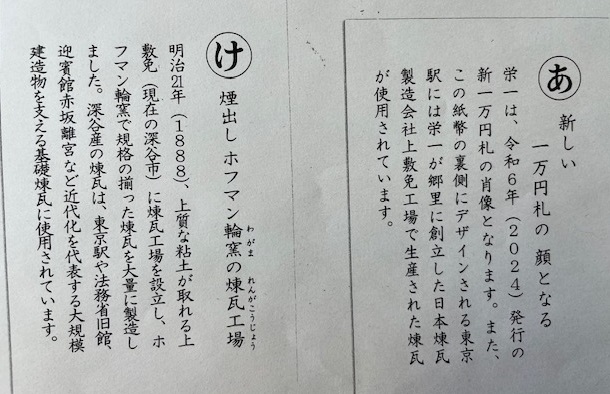 あ
新しい
一万円札の 顔となる
栄一は、令和6年(2024)発行の
新一万円札の肖像となります。また、
この紙幣の裏側にデザインされる東京
駅には栄一が郷里に創立した日本煉瓦
製造会社上敷免工場で生産された煉瓦
が使用されています。
け
煙出し ホフマン輪窯の煉瓦工場
わがま れんがこうじょう
明治21年(1888)、上質な粘土が取れる上
敷免(現在の深谷市)に煉瓦工場を設立し、ホ
フマン輪窯で規格の揃った煉瓦を大量に製造し
ました。深谷産の煉瓦は、東京駅や法務省旧館、
迎賓館赤坂離宮など近代化を代表する大規模
建造物を支える基礎煉瓦に使用されています。